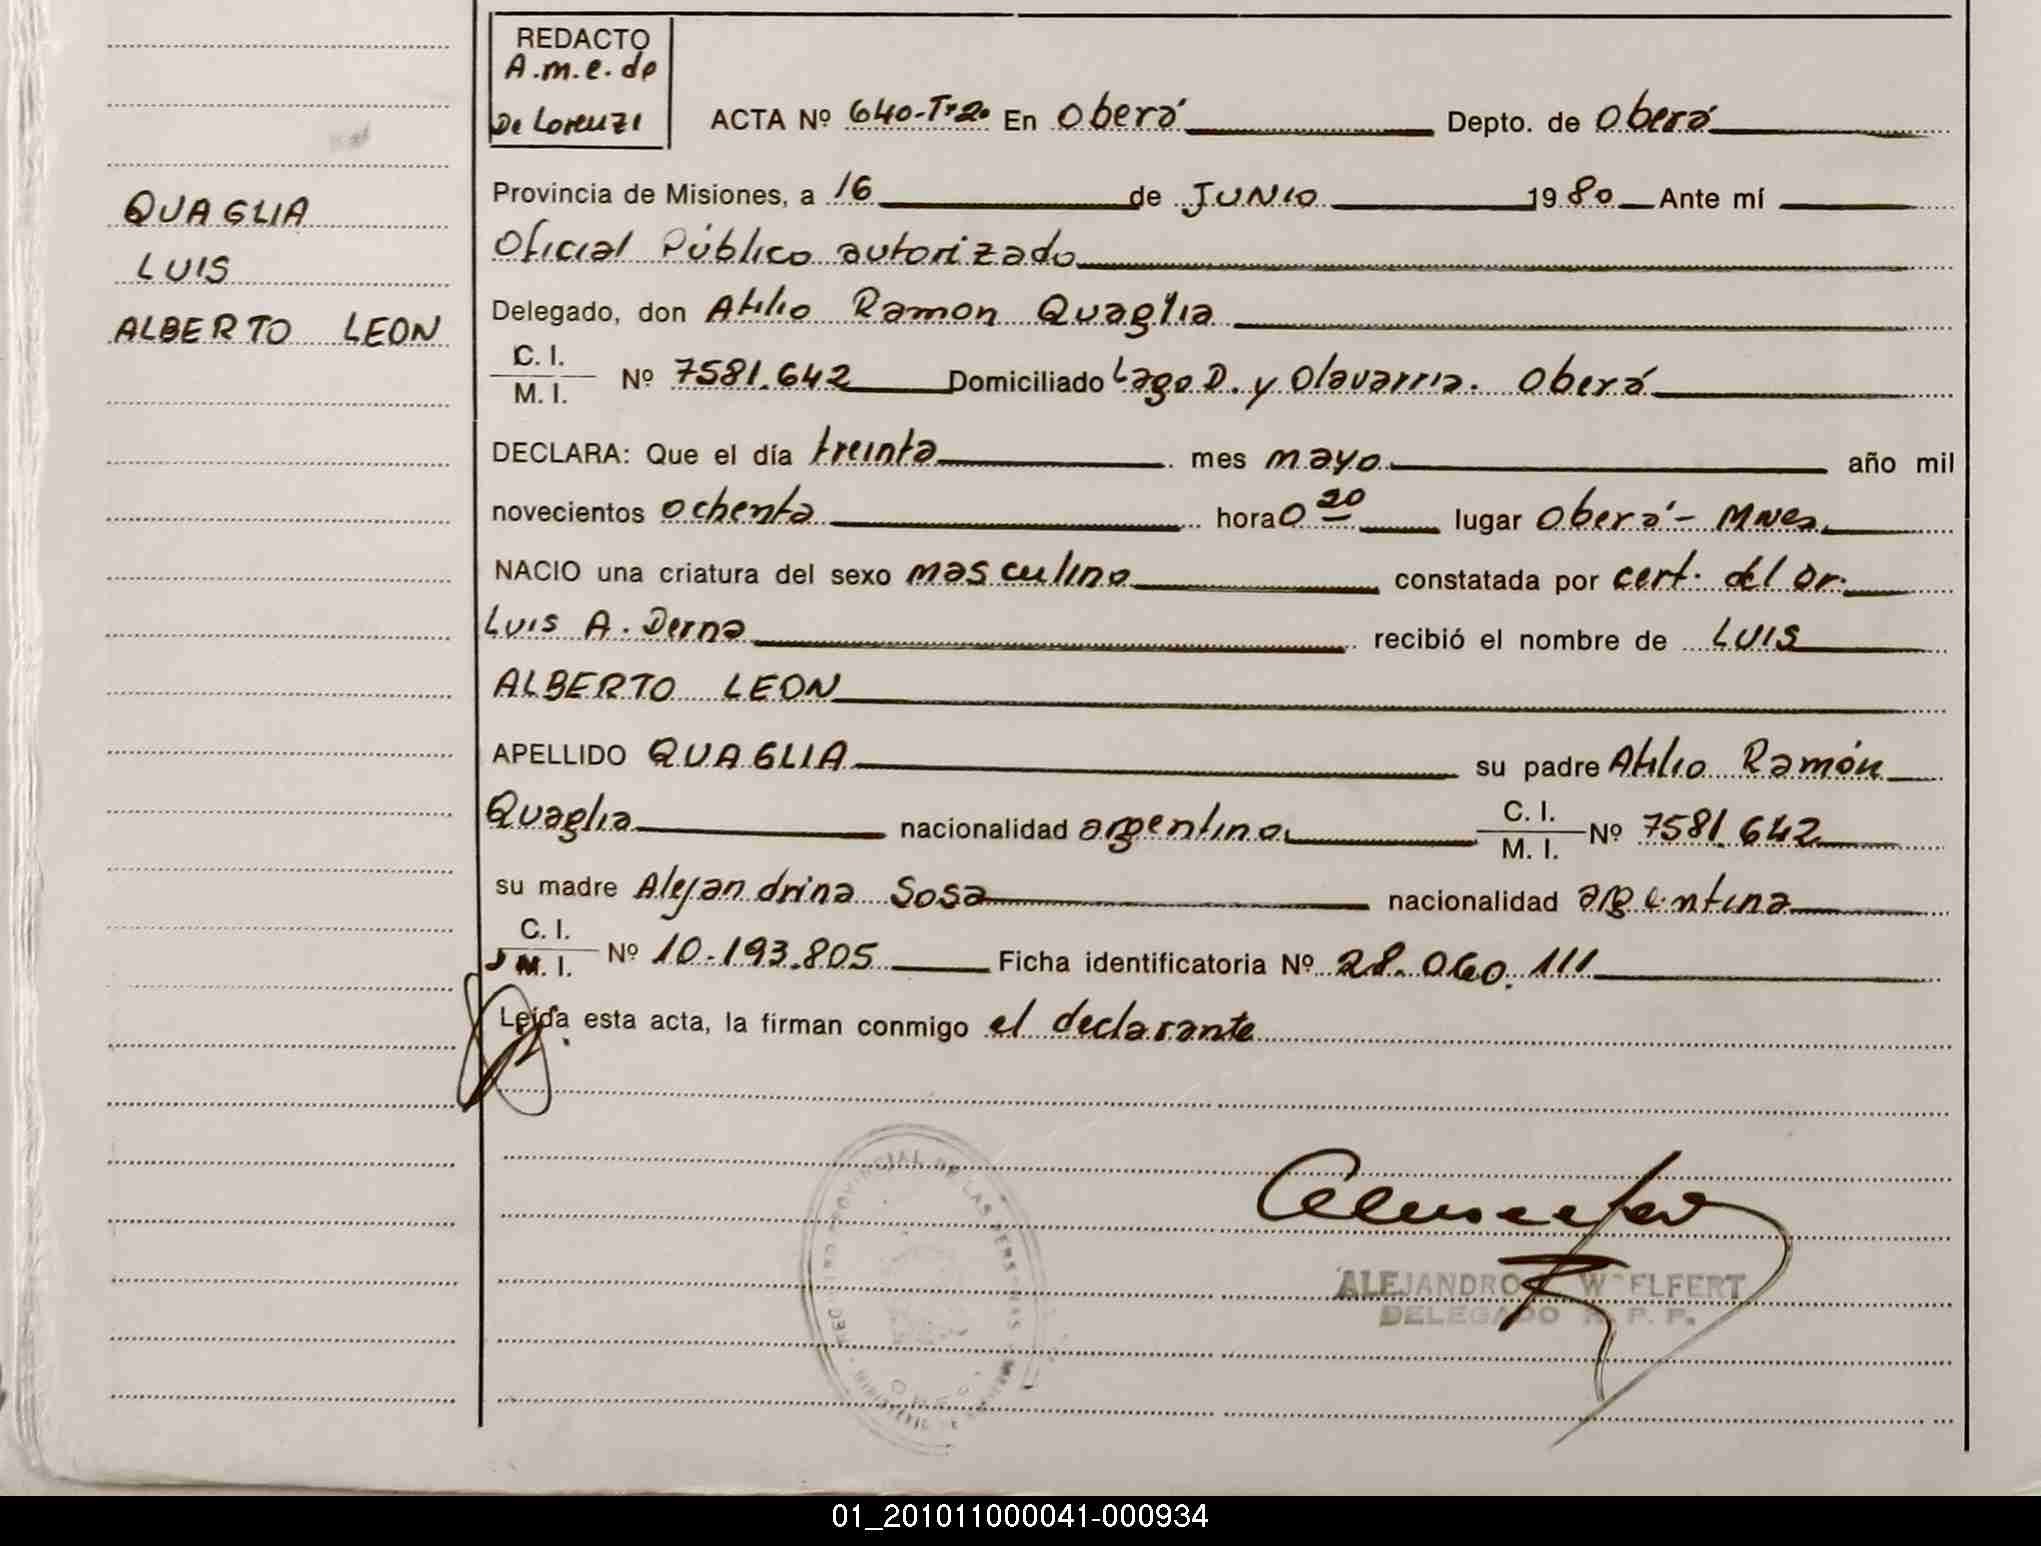 REDACTO
A.m.e. de
De Lorenzi
ACTA Nº 640-Tº2º En Oberá Depto. de Oberá
QUAGLIA
LUIS
ALBERTO LEON
Provincia de Misiones, a 16 de JUNIO 1980 Ante mí
Oficial Público autorizado
Delegado, don Atilio Ramon Quaglia
C. I.
M. I. Nº 7581.642 Domiciliado Lago D. y Olavarria. Oberá
DECLARA: Que el día treinta mes mayo año mil
novecientos ochenta hora 0 20 lugar Oberá - Mnes
NACIO una criatura del sexo masculino constatada por cert. del Dr.
Luis A. Derna recibió el nombre de LUIS
ALBERTO LEON
APELLIDO QUAGLIA su padre Atilio Ramón
Quaglia nacionalidad argentino C. I. M. I. Nº 7581.642
su madre Alejandrina Sosa nacionalidad argentina
C. I.
M. I. Nº 10.193.805 Ficha identificatoria Nº 28.060.111
Leída esta acta, la firman conmigo el declarante
PROVINCIAL DE LAS PERSONAS
ALEJANDRO WOELFERT
DELEGADO R. P. P.
01_201011000041-000934